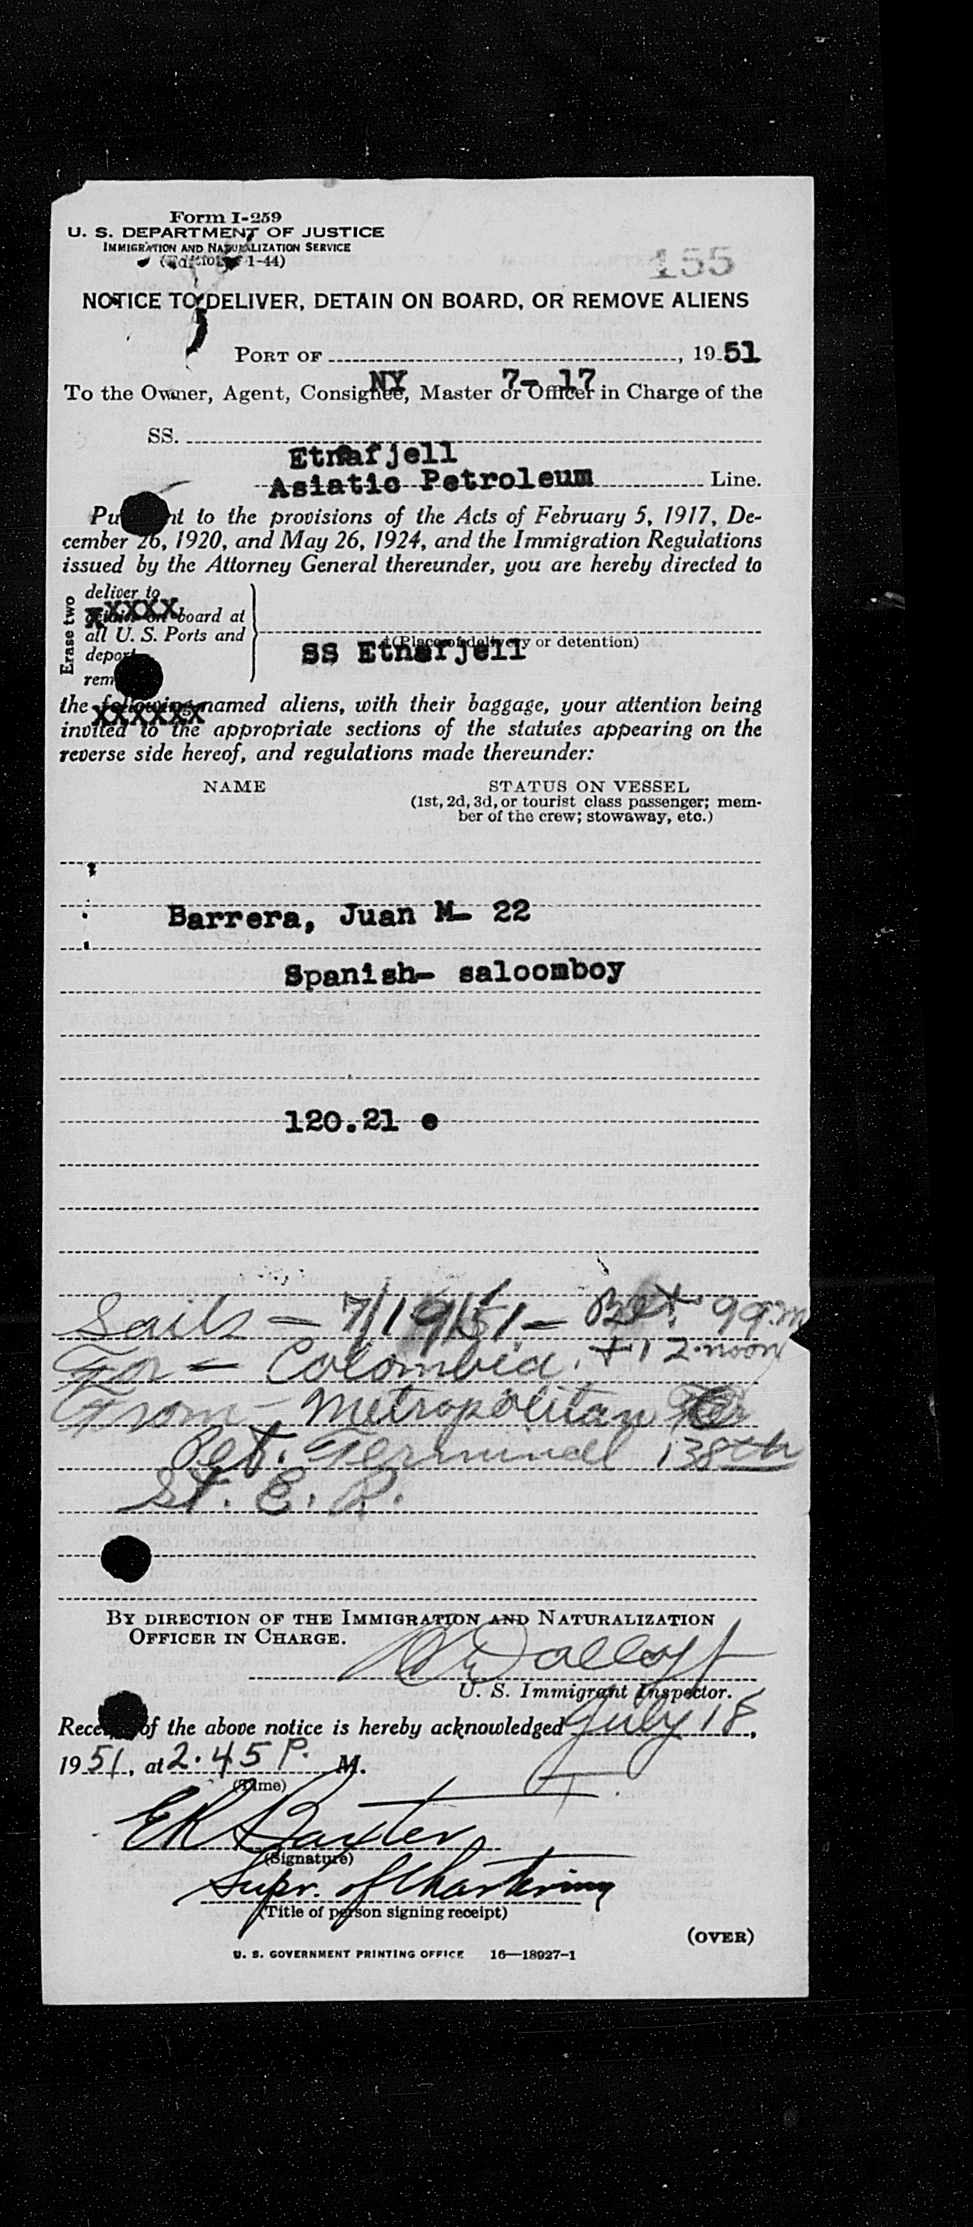 Form I-259
U. S. DEPARTMENT OF JUSTICE
IMMIGRATION AND NATURALIZATION SERVICE
(Edition of 1-44)
155
NOTICE TO DELIVER, DETAIN ON BOARD, OR REMOVE ALIENS
PORT OF , 19 51
NY 7- 17
To the Owner, Agent, Consignee, Master or Officer in Charge of the
SS.
Etnafjell
Asiatic Petroleum Line.
Pu nt to the provisions of the Acts of February 5, 1917, De-
cember 26, 1920, and May 26, 1924, and the Immigration Regulations
issued by the Attorney General thereunder, you are hereby directed to
Erase two
deliver to
xxxxx
detain on board at
all U. S. Ports and
deport
rem
(Place of delivery or detention)
SS Etnafjell
the following named aliens, with their baggage, your attention being
xxxxxx
invited to the appropriate sections of the statutes appearing on the
reverse side hereof, and regulations made thereunder:
NAME STATUS ON VESSEL
(1st, 2d, 3d, or tourist class passenger; mem-
ber of the crew; stowaway, etc.)
Barrera, Juan M- 22
Spanish- saloomboy
120.21 e
Sails - 7/19/51 - Bet. 9 a.m
For - Colombia. + 12 noon
From - Metropolitan
Pet. Terminal 138th
St. E. R.
BY DIRECTION OF THE IMMIGRATION AND NATURALIZATION
OFFICER IN CHARGE.
U. S. Immigrant Inspector.
Rece of the above notice is hereby acknowledged July 18,
19 51, at 2.45 P. M.
(Time)
E R Baxter
(Signature)
Supr. of Chartering
(Title of person signing receipt)
(OVER)
U. S. GOVERNMENT PRINTING OFFICE 16—18927-1